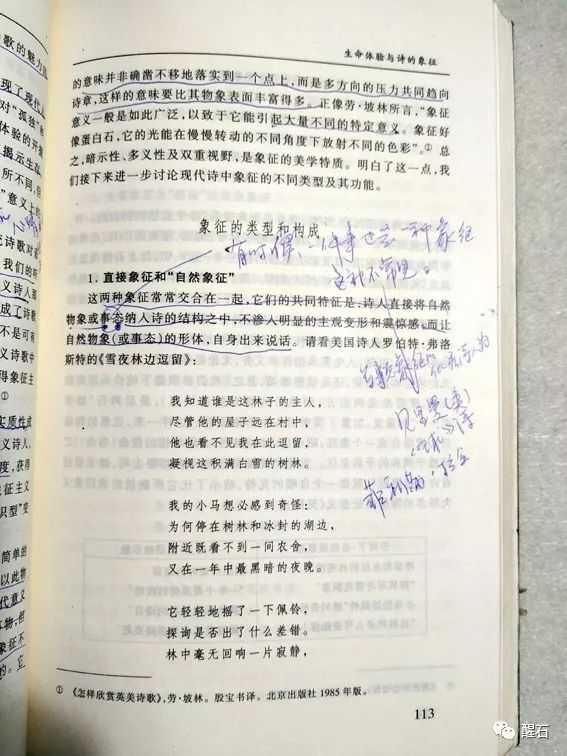 歌的魅力
生命体验与诗的象征
的意味并非确凿不移地落实到一个点上，而是多方向的压力共同趋向
诗章，这样的意味要比其物象表面丰富得多。正像劳·坡林所言，“象征
意义一般是如此广泛，以致于它能引起大量不同的特定意义。象征好
像蛋白石，它的光能在慢慢转动的不同角度下放射不同的色彩”。①　总
之，暗示性、多义性及双重视野，是象征的美学特质。明白了这一点，我
们接下来进一步讨论现代诗中象征的不同类型及其功能。
象征的类型和构成
有时候，一件事也是一种象征
这种不常见。
1. 直接象征和“自然象征”
这两种象征常常交合在一起，它们的共同特征是：诗人直接将自然
物象或事态纳人诗的结构之中，不渗人明显的主观变形和震惊感。而让
自然物象（或事态）的形体，自身出来说话。请看美国诗人罗伯特·弗洛
斯特的《雪夜林边逗留》：
我知道谁是这林子的主人，
尽管他的屋子远在村中，
他也看不见我在此逗留，
凝视这积满白雪的树林。
我的小马想必感到奇怪：
为何停在树林和冰封的湖边，
附近既看不到一间农舍，
又在一年中最黑暗的夜晚。
它轻轻地摇了一下佩铃，
探询是否出了什么差错。
林中毫无回响一片寂静，
①　《怎样欣赏英美诗歌》，劳·坡林。殷宝书译。北京出版社 1985 年版。
113
醒石